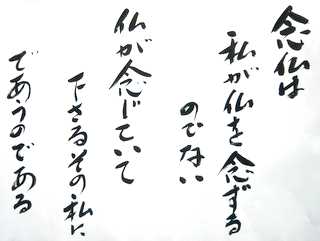 念仏は
私が仏を念ずる
のでない
仏が念じていて
下さるその私に
であうのである